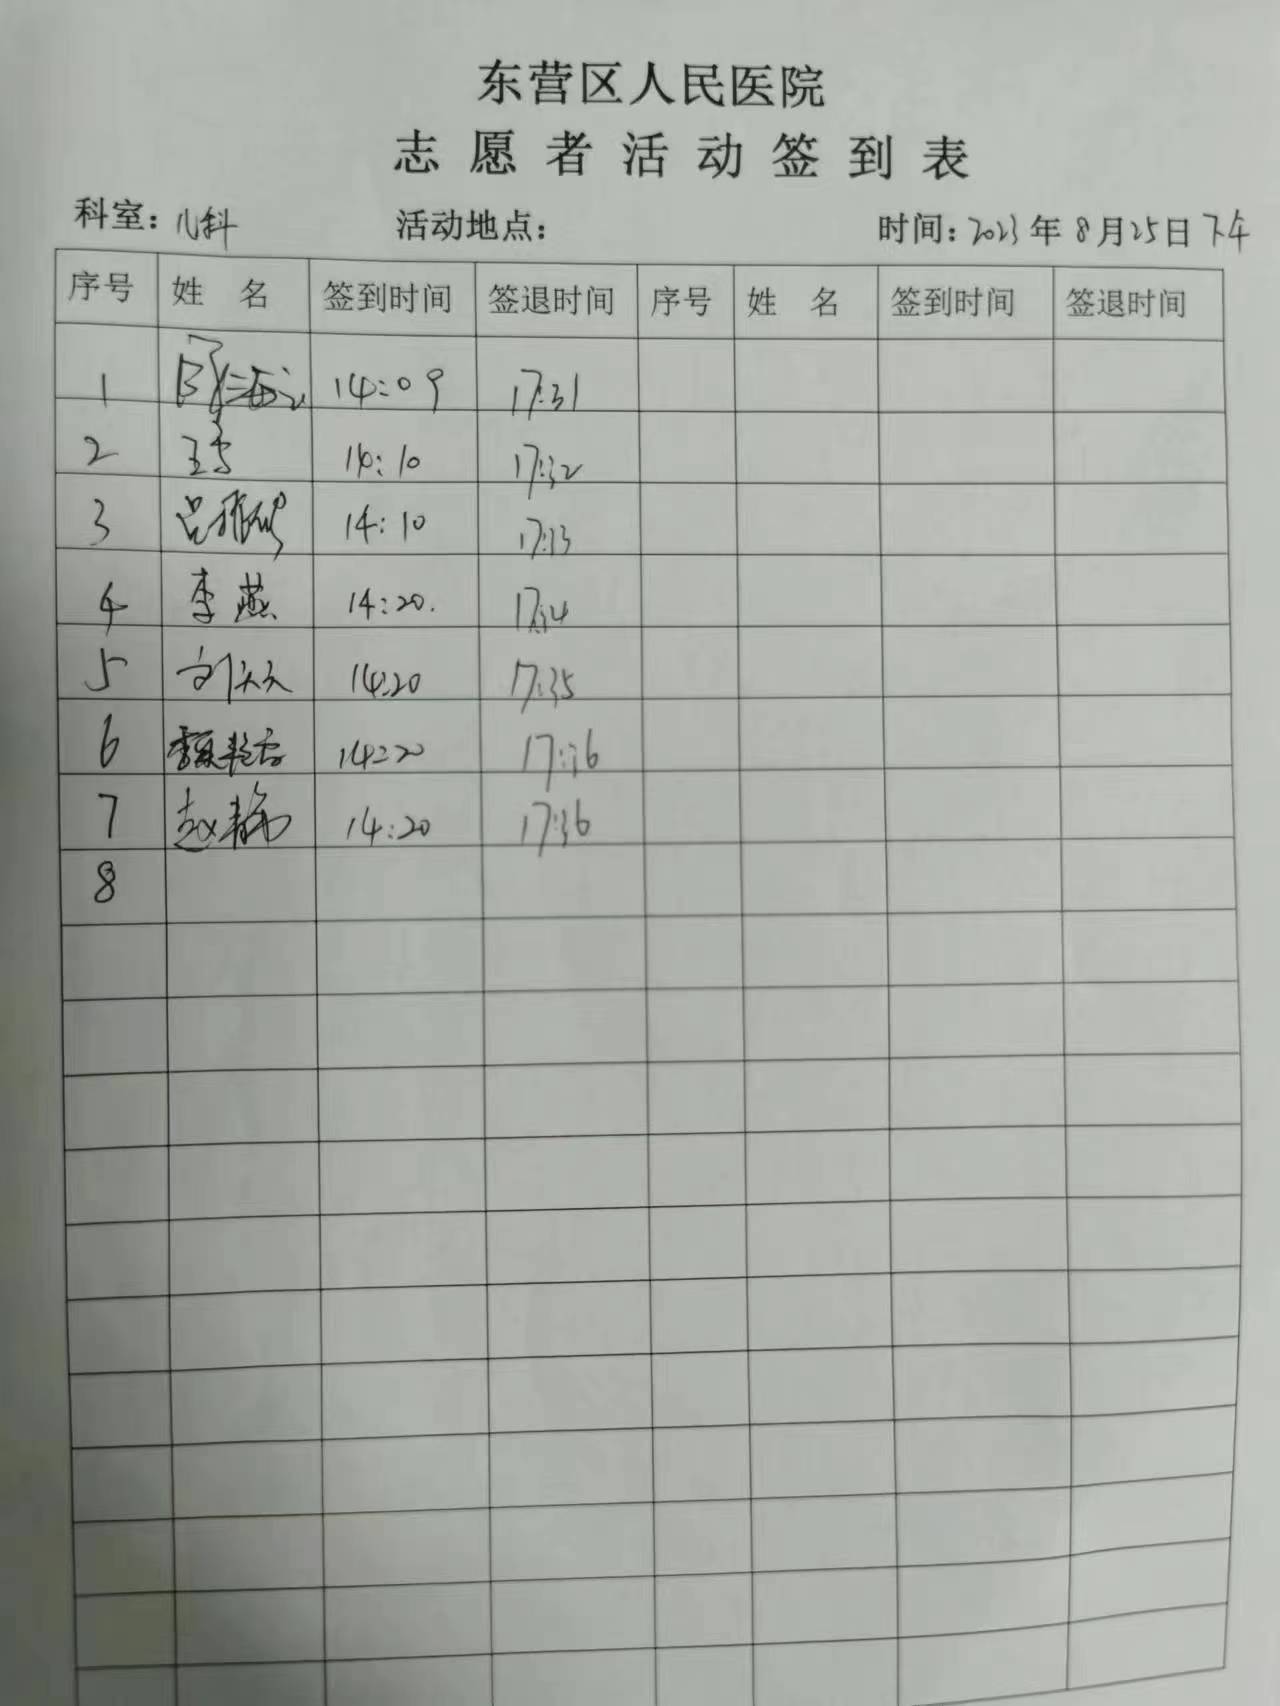 东营区人民医院
志愿者活动签到表
科室：儿科 活动地点： 时间：2023年8月25日下午
序号 姓名 签到时间 签退时间 序号 姓名 签到时间 签退时间
1 14:09 17:31
2 14:10 17:32
3 14:10
4 李燕 14:20.
5 刘天天 14:20 17:35
6 14:20
7 赵静 14:20 17:36
8